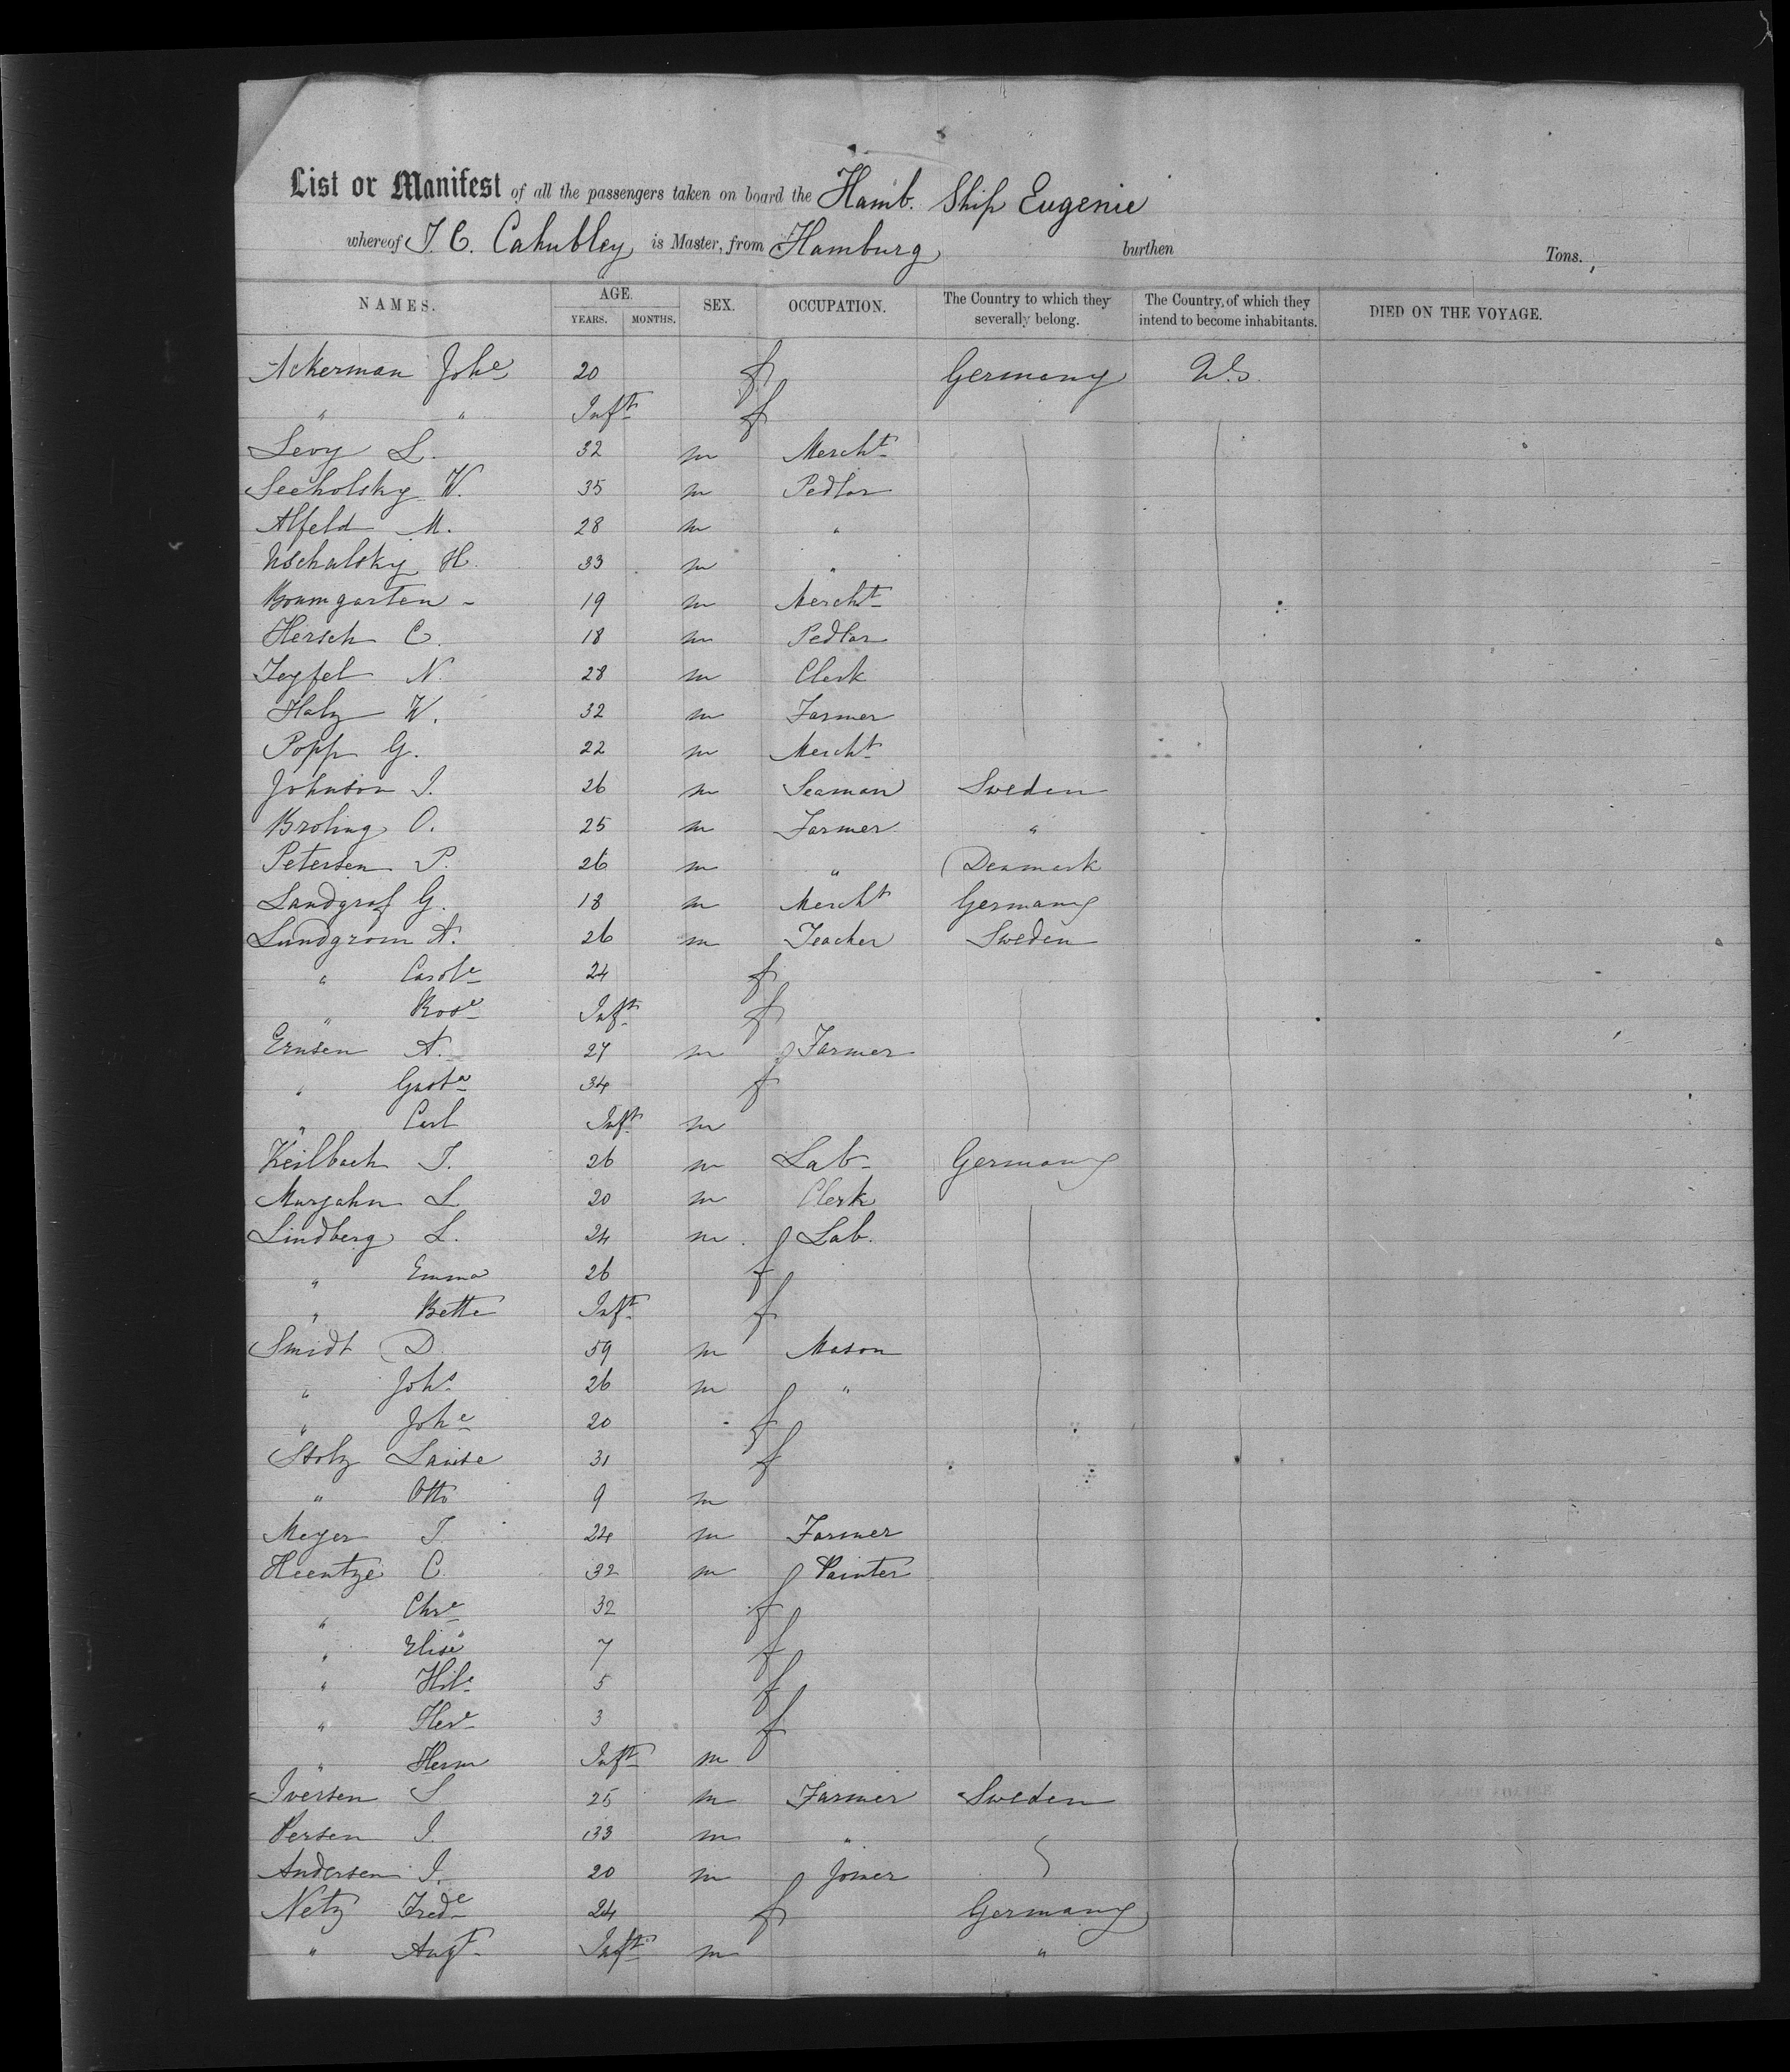 List or Manifest of all the passengers taken on board the Hamb. Ship Eugenie
whereof J. C. Cahubley is Master, from Hamburg burthen Tons.
NAMES. AGE. YEARS. MONTHS. SEX. OCCUPATION. The Country to which they severally belong. The Country, of which they intend to become inhabitants. DIED ON THE VOYAGE.
Ackerman Johe 20 f Germany U.S.
" " Inft f
Levy L. 32 m Mercht
Seeholsky W. 35 m Pedlar
Alfeld M. 28 m "
Uschalsky H. 33 m "
Baumgarten - 19 m Mercht
Hersch C. 18 m Pedlar
Teyfel N. 28 m Clerk
Halz W. 32 m Farmer
Popp G. 22 m Mercht
Johnson J. 26 m Seaman Sweden
Broling O. 25 m Farmer "
Petersen P. 26 m " Denmark
Landgraf G. 18 m Mercht Germany
Lundgrom A. 26 m Teacher Sweden
" Carole 24 f
" Rose Inft f
Ernsen A. 27 m Farmer
" Gusta 34 f
" Carl Inft m
Keilbach J. 26 m Lab Germany
Murjahn L 20 m Clerk
Lindberg L. 24 m Lab.
" Emma 26 f
" Bette Inft f
Smidt D 59 m Mason
" Johs 26 m "
" Johe 20 f
Stolz Louise 31 f
" Otto 9 m
Meyer J. 24 m Farmer
Heentze C. 32 m Painter
" Chre 32 f
" Elise 7 f
" Hile 5 f
" Here 3 f
" Herm Inft m
Iversen S 25 m Farmer Sweden
Persen J. 33 m "
Andersen J. 20 m Joiner
Netz Frede 24 f Germany
" Augt Inft m "